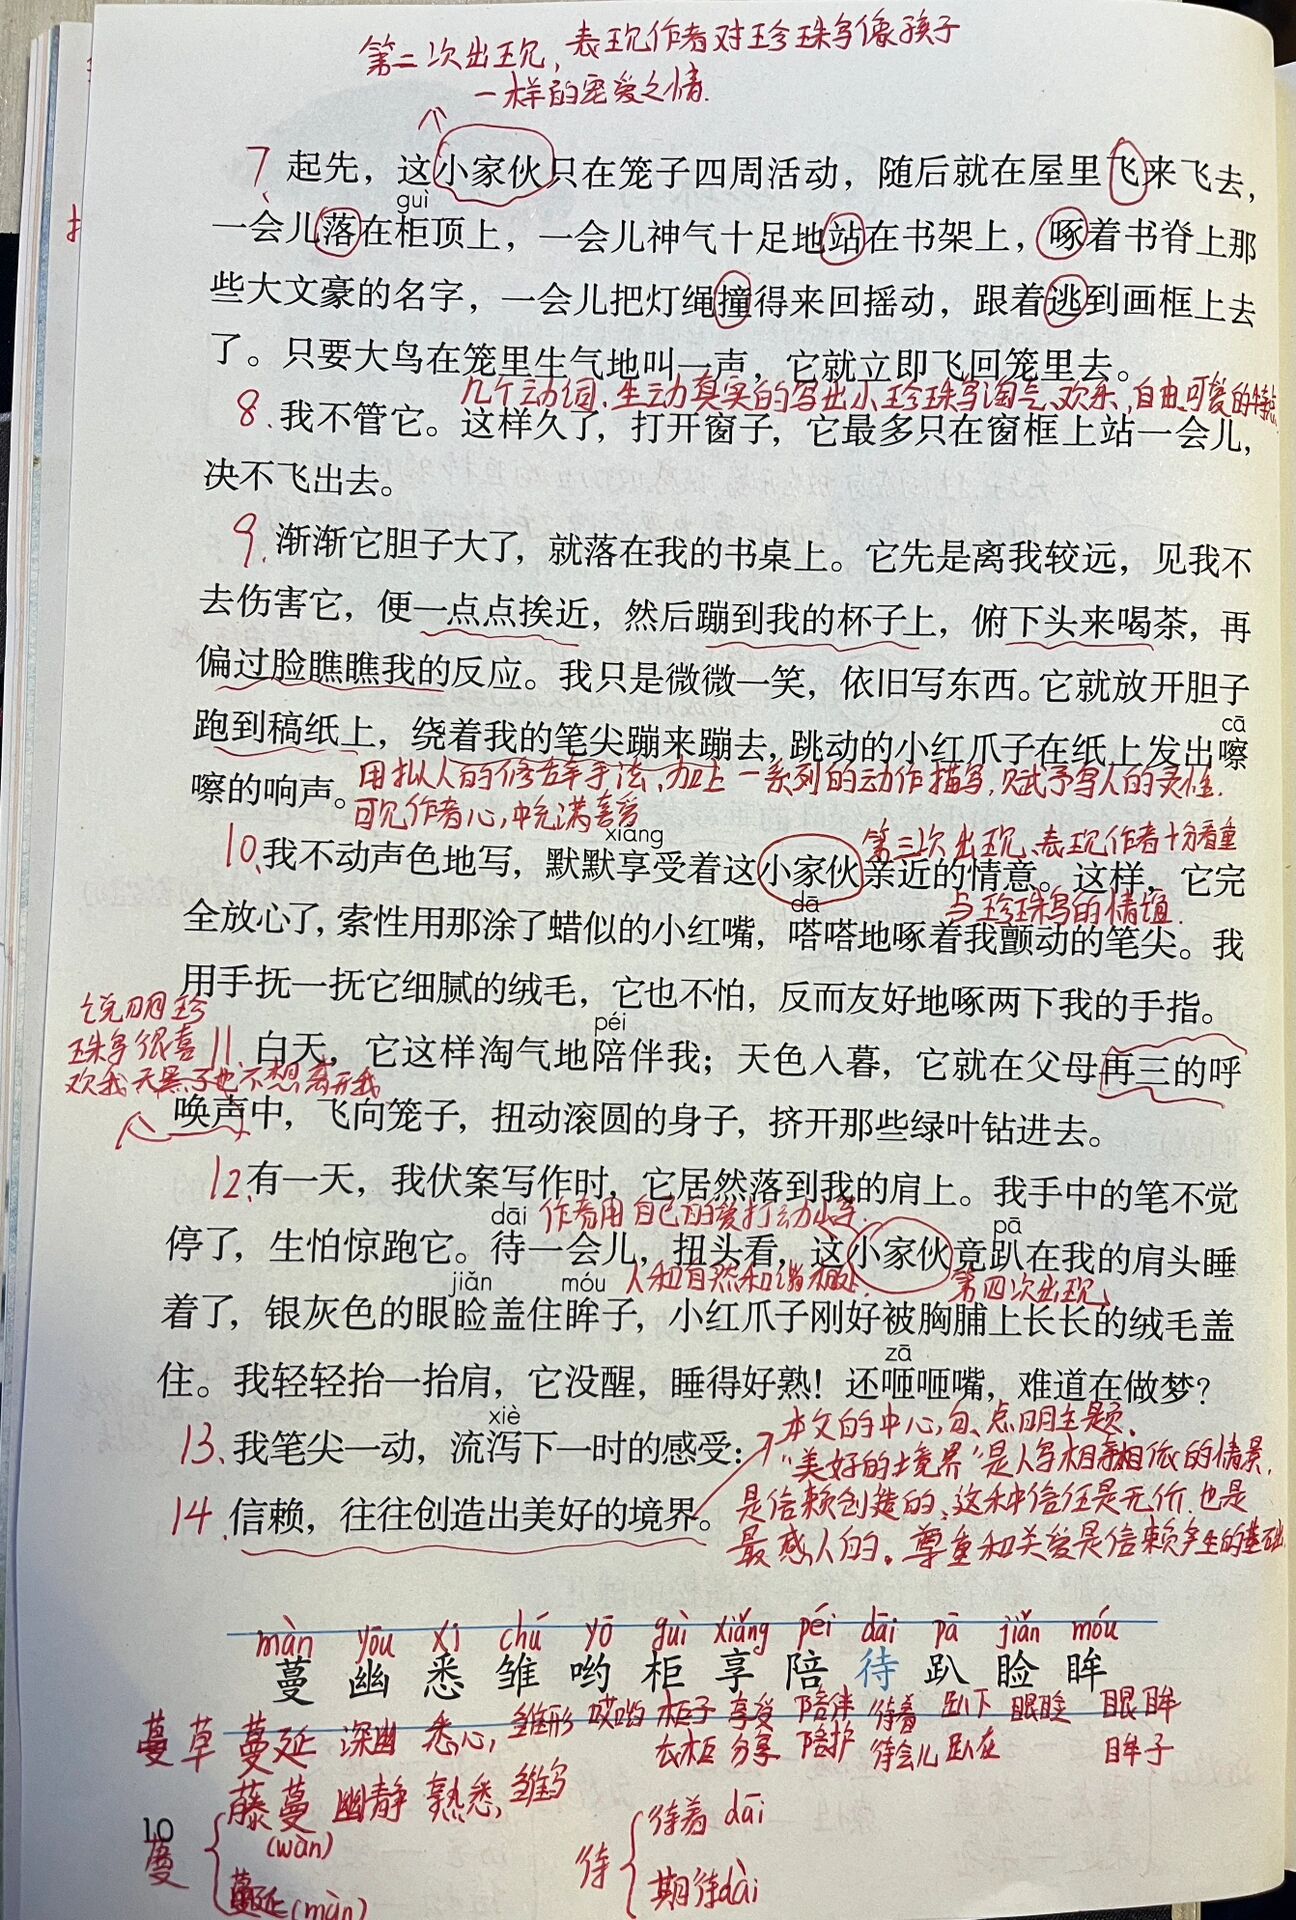 第二次出现，表现作者对珍珠鸟像孩子
一样的宠爱之情.
7、起先，这小家伙只在笼子四周活动，随后就在屋里飞来飞去，
guì
一会儿落在柜顶上，一会儿神气十足地站在书架上，啄着书脊上那
些大文豪的名字，一会儿把灯绳撞得来回摇动，跟着逃到画框上去
了。只要大鸟在笼里生气地叫一声，它就立即飞回笼里去。
几个动词，生动真实的写出小珍珠鸟淘气、欢乐、自由、可爱的特点.
8、我不管它。这样久了，打开窗子，它最多只在窗框上站一会儿，
决不飞出去。
9、渐渐它胆子大了，就落在我的书桌上。它先是离我较远，见我不
去伤害它，便一点点挨近，然后蹦到我的杯子上，俯下头来喝茶，再
偏过脸瞧瞧我的反应。我只是微微一笑，依旧写东西。它就放开胆子
cā
跑到稿纸上，绕着我的笔尖蹦来蹦去，跳动的小红爪子在纸上发出嚓
嚓的响声。
用拟人的修辞手法，加上一系列的动作描写，赋予鸟人的灵性.
可见作者心中充满喜爱
xiǎng
第三次出现、表现作者十分看重
10、我不动声色地写，默默享受着这小家伙亲近的情意。这样，它完
与珍珠鸟的情谊.
dā
全放心了，索性用那涂了蜡似的小红嘴，嗒嗒地啄着我颤动的笔尖。我
用手抚一抚它细腻的绒毛，它也不怕，反而友好地啄两下我的手指。
说明珍
珠鸟很喜
欢我天黑了也不想离开我
péi
11、白天，它这样淘气地陪伴我；天色入暮，它就在父母再三的呼
唤声中，飞向笼子，扭动滚圆的身子，挤开那些绿叶钻进去。
12、有一天，我伏案写作时，它居然落到我的肩上。我手中的笔不觉
作者用自己的爱打动小鸟.
dāi pā
停了，生怕惊跑它。待一会儿，扭头看，这小家伙竟趴在我的肩头睡
人和自然和谐相处. 第四次出现、
jiǎn móu
着了，银灰色的眼睑盖住眸子，小红爪子刚好被胸脯上长长的绒毛盖
zā
住。我轻轻抬一抬肩，它没醒，睡得好熟！还咂咂嘴，难道在做梦？
xiè
13、我笔尖一动，流泻下一时的感受：
14、信赖，往往创造出美好的境界。
本文的中心句、点明主题、
“美好的境界”是人鸟相亲相依的情景，
是信赖创造的、这种信任是无价.也是
最感人的。尊重和关爱是信赖产生的基础
màn yōu xī chú yō guì xiǎng péi dāi pā jiǎn móu
蔓 幽 悉 雏 哟 柜 享 陪 待 趴 睑 眸
蔓草 蔓延 深幽 悉心， 雏形 哎哟 柜子 享受 陪伴 待着 趴下 眼睑 眼眸
衣柜 分享 陪护 待会儿 趴在 眸子
藤蔓 幽静 熟悉， 雏鸟
(wàn)
10
蔓
蔓延(màn)
待
待着 dāi
期待dài